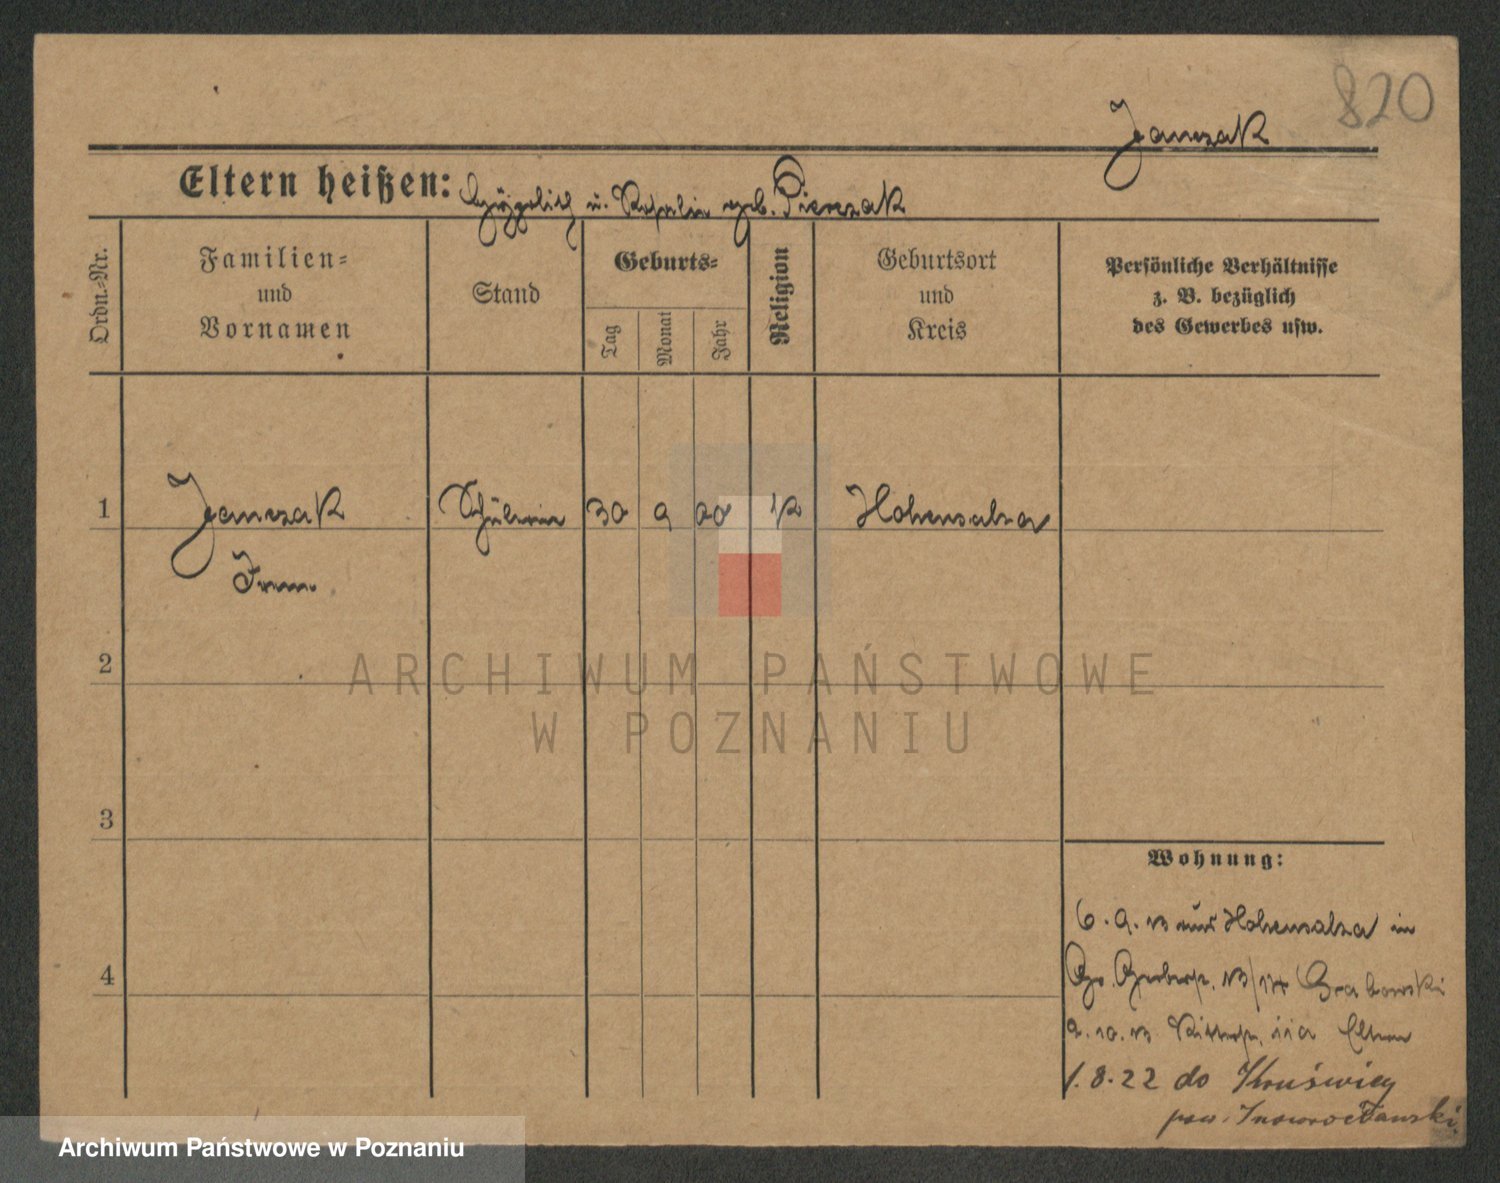 820
Janczak
Eltern heißen: u. Rosalie geb. Pierczak
Ordn.-Nr.
Familien-
und
Vornamen
Stand
Geburts-
Tag
Monat
Jahr
Religion
Geburtsort
und
Kreis
Persönliche Verhältnisse
z. B. bezüglich
des Gewerbes usw.
1 Janczak Schülerin 30 9 00 K Hohensalza
Irene
2
3
4
Wohnung:
6. 9. 13 aus Hohensalza in
Gr. Gerberstr. Grabowski
2. 10. 13 Ritterstr. 11a Eltern
1.8.22 do Kruświcy
pow. Inowrocławski.
ARCHIWUM PAŃSTWOWE
W POZNANIU
Archiwum Państwowe w Poznaniu